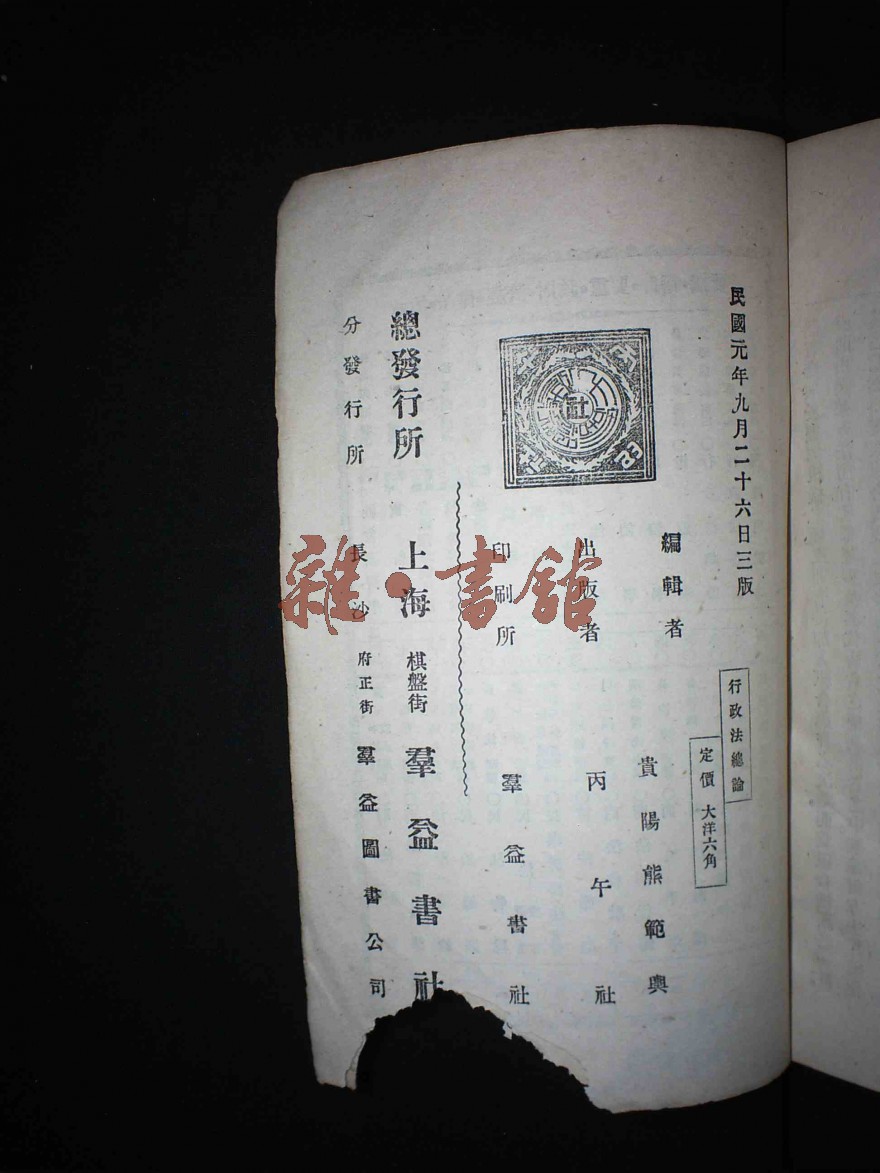 民國元年九月二十六日三版
行政法總論
定價 大洋六角
編輯者 貴陽熊範輿
出版者 丙午社
印刷所 羣益書社
社
總發行所 上海棋盤街羣益書社
分發行所 長沙府正街羣益圖書公司
雜·書館